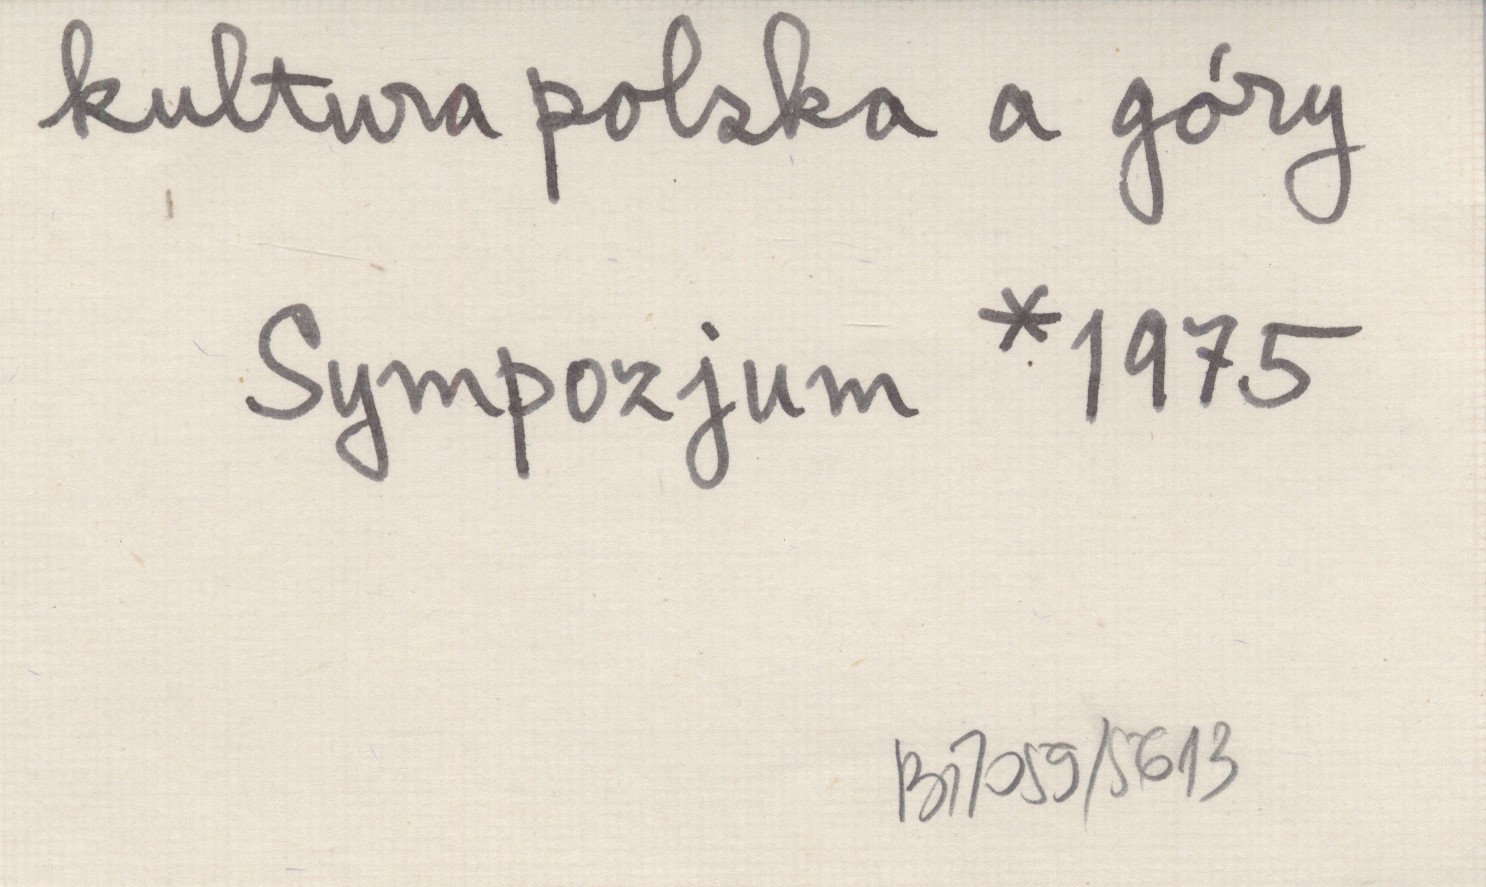 kultura polska a góry
Sympozjum *1975
Bi7059/5613